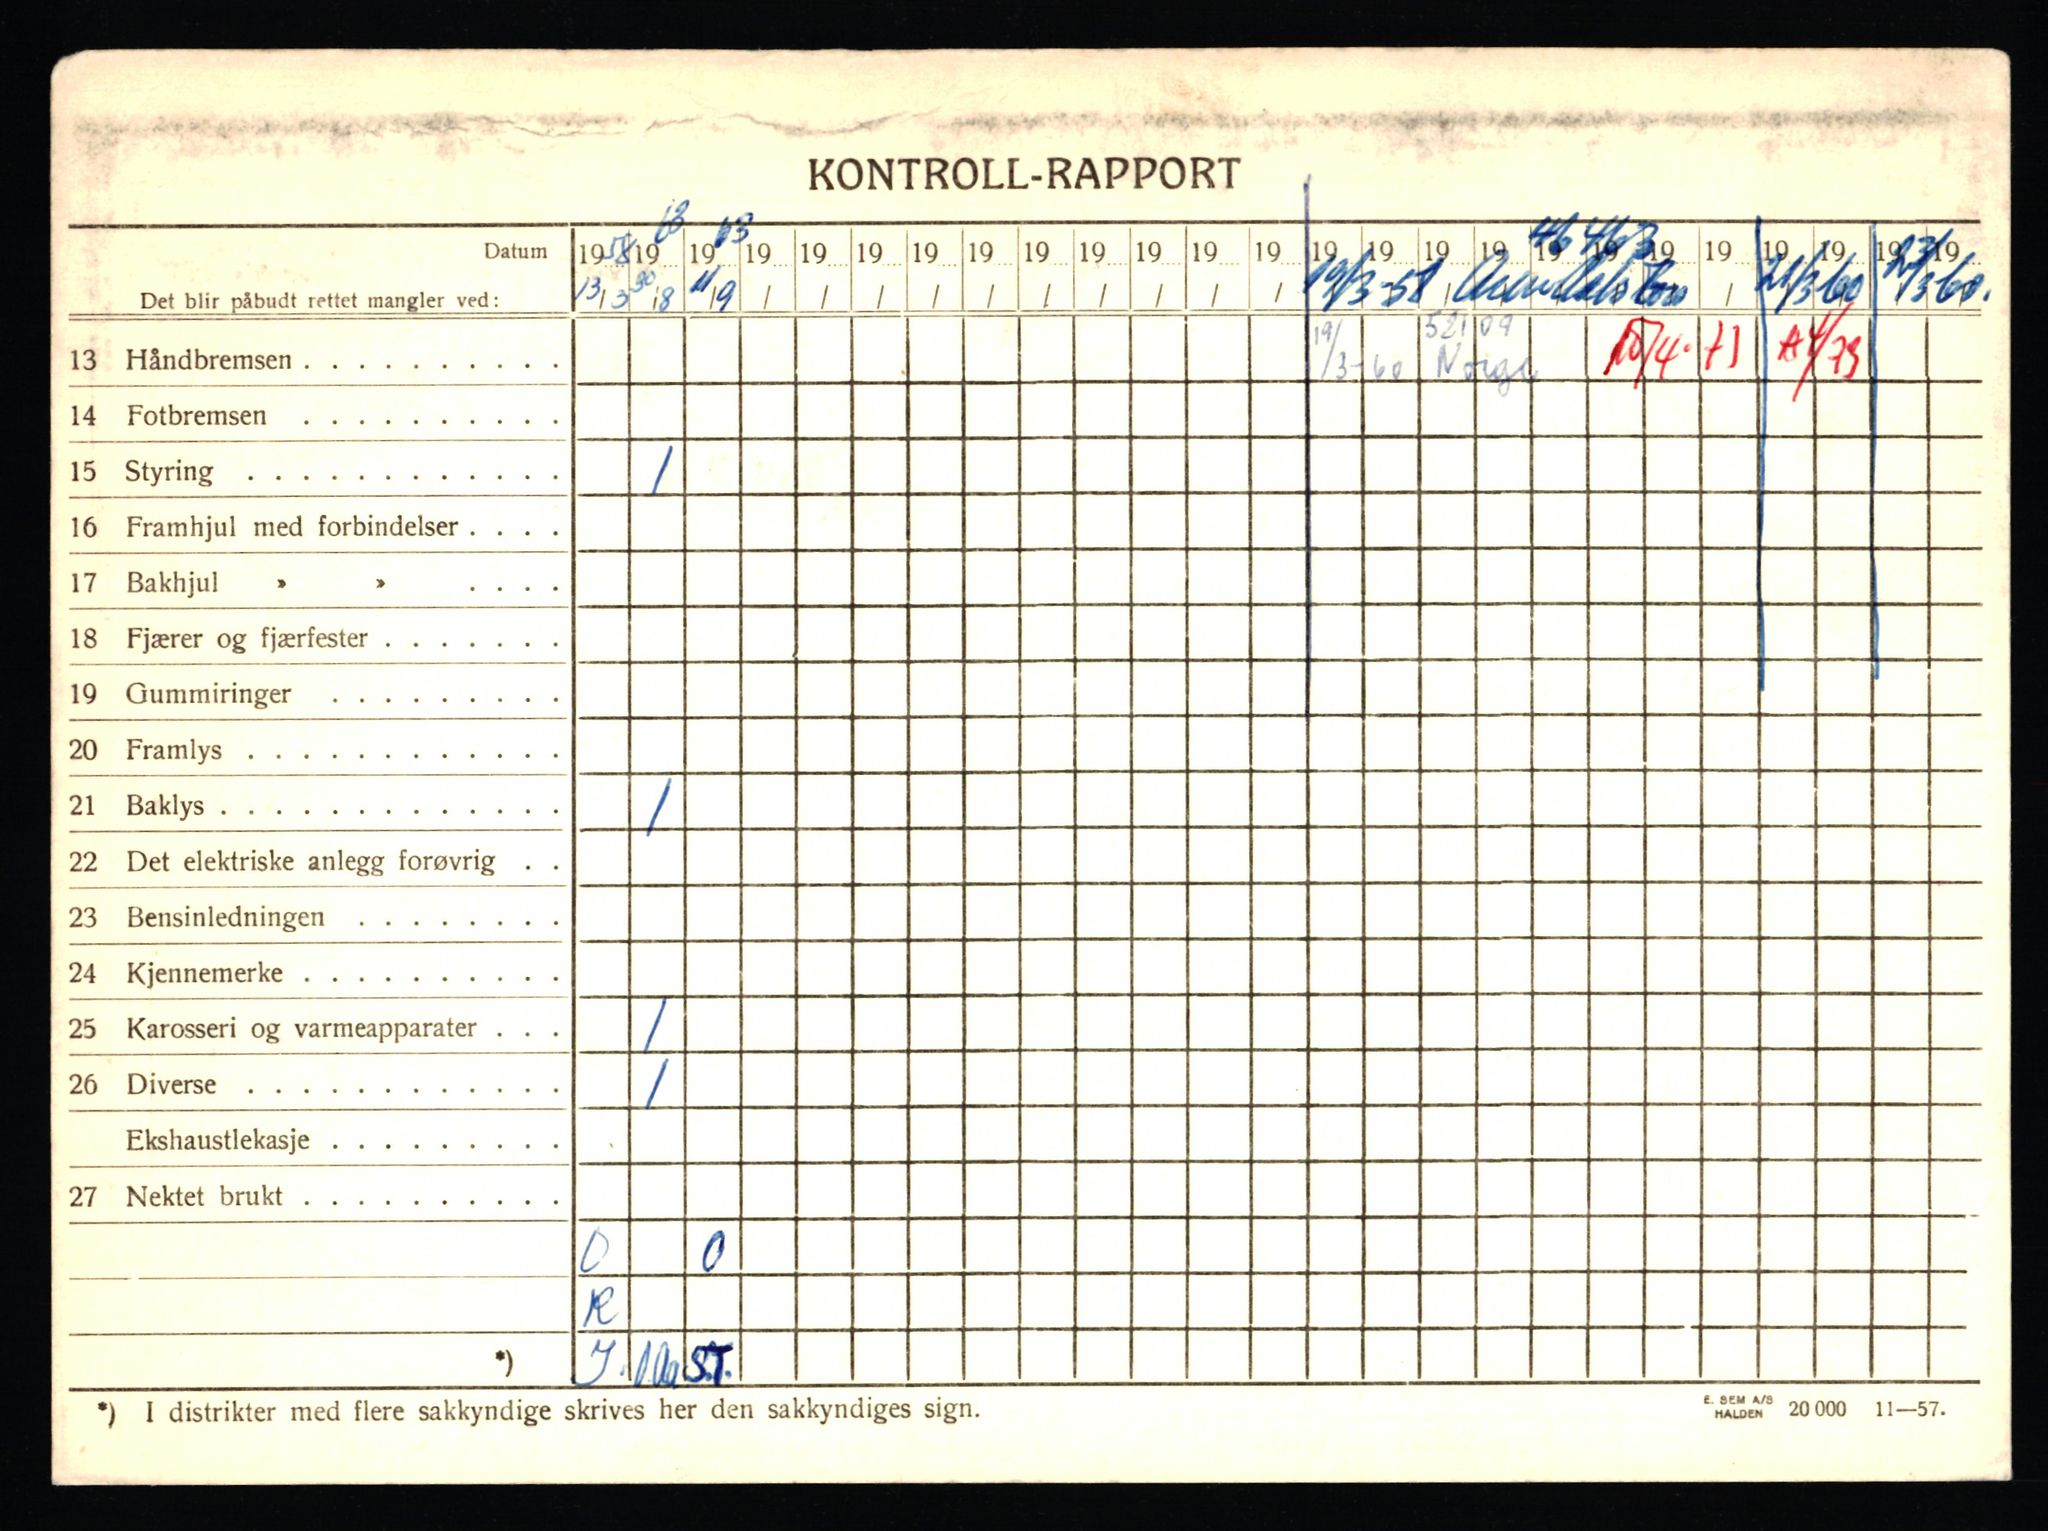 KONTROLL-RAPPORT
Datum 19 58 19 19 63 19 19 19 19 19 19 19 19 19 19 19 19 19 19 19 19 19 19 19 19 19 19
46463
Det blir påbudt rettet mangler ved: 13/3 30/8 11/9 / / / / / / / / / / 19/3-58 21/3 60 23/3-60.
13 Håndbremsen . . . . . . . . . . 19/3-60 52109 Norge 10/4-73
14 Fotbremsen . . . . . . . . . .
15 Styring . . . . . . . . . . . . /
16 Framhjul med forbindelser . . . .
17 Bakhjul » » . . . .
18 Fjærer og fjærfester . . . . . . .
19 Gummiringer . . . . . . . . .
20 Framlys . . . . . . . . . . . .
21 Baklys . . . . . . . . . . . . . /
22 Det elektriske anlegg forøvrig . .
23 Bensinledningen . . . . . . . .
24 Kjennemerke . . . . . . . . . .
25 Karosseri og varmeapparater . . . /
26 Diverse . . . . . . . . . . . . /
Ekshaustlekasje . . . . . . . . .
27 Nektet brukt . . . . . . . . . .
O O
R
*) J. S.T.
*) I distrikter med flere sakkyndige skrives her den sakkyndiges sign.
E. SEM A/S
HALDEN 20 000 11—57.